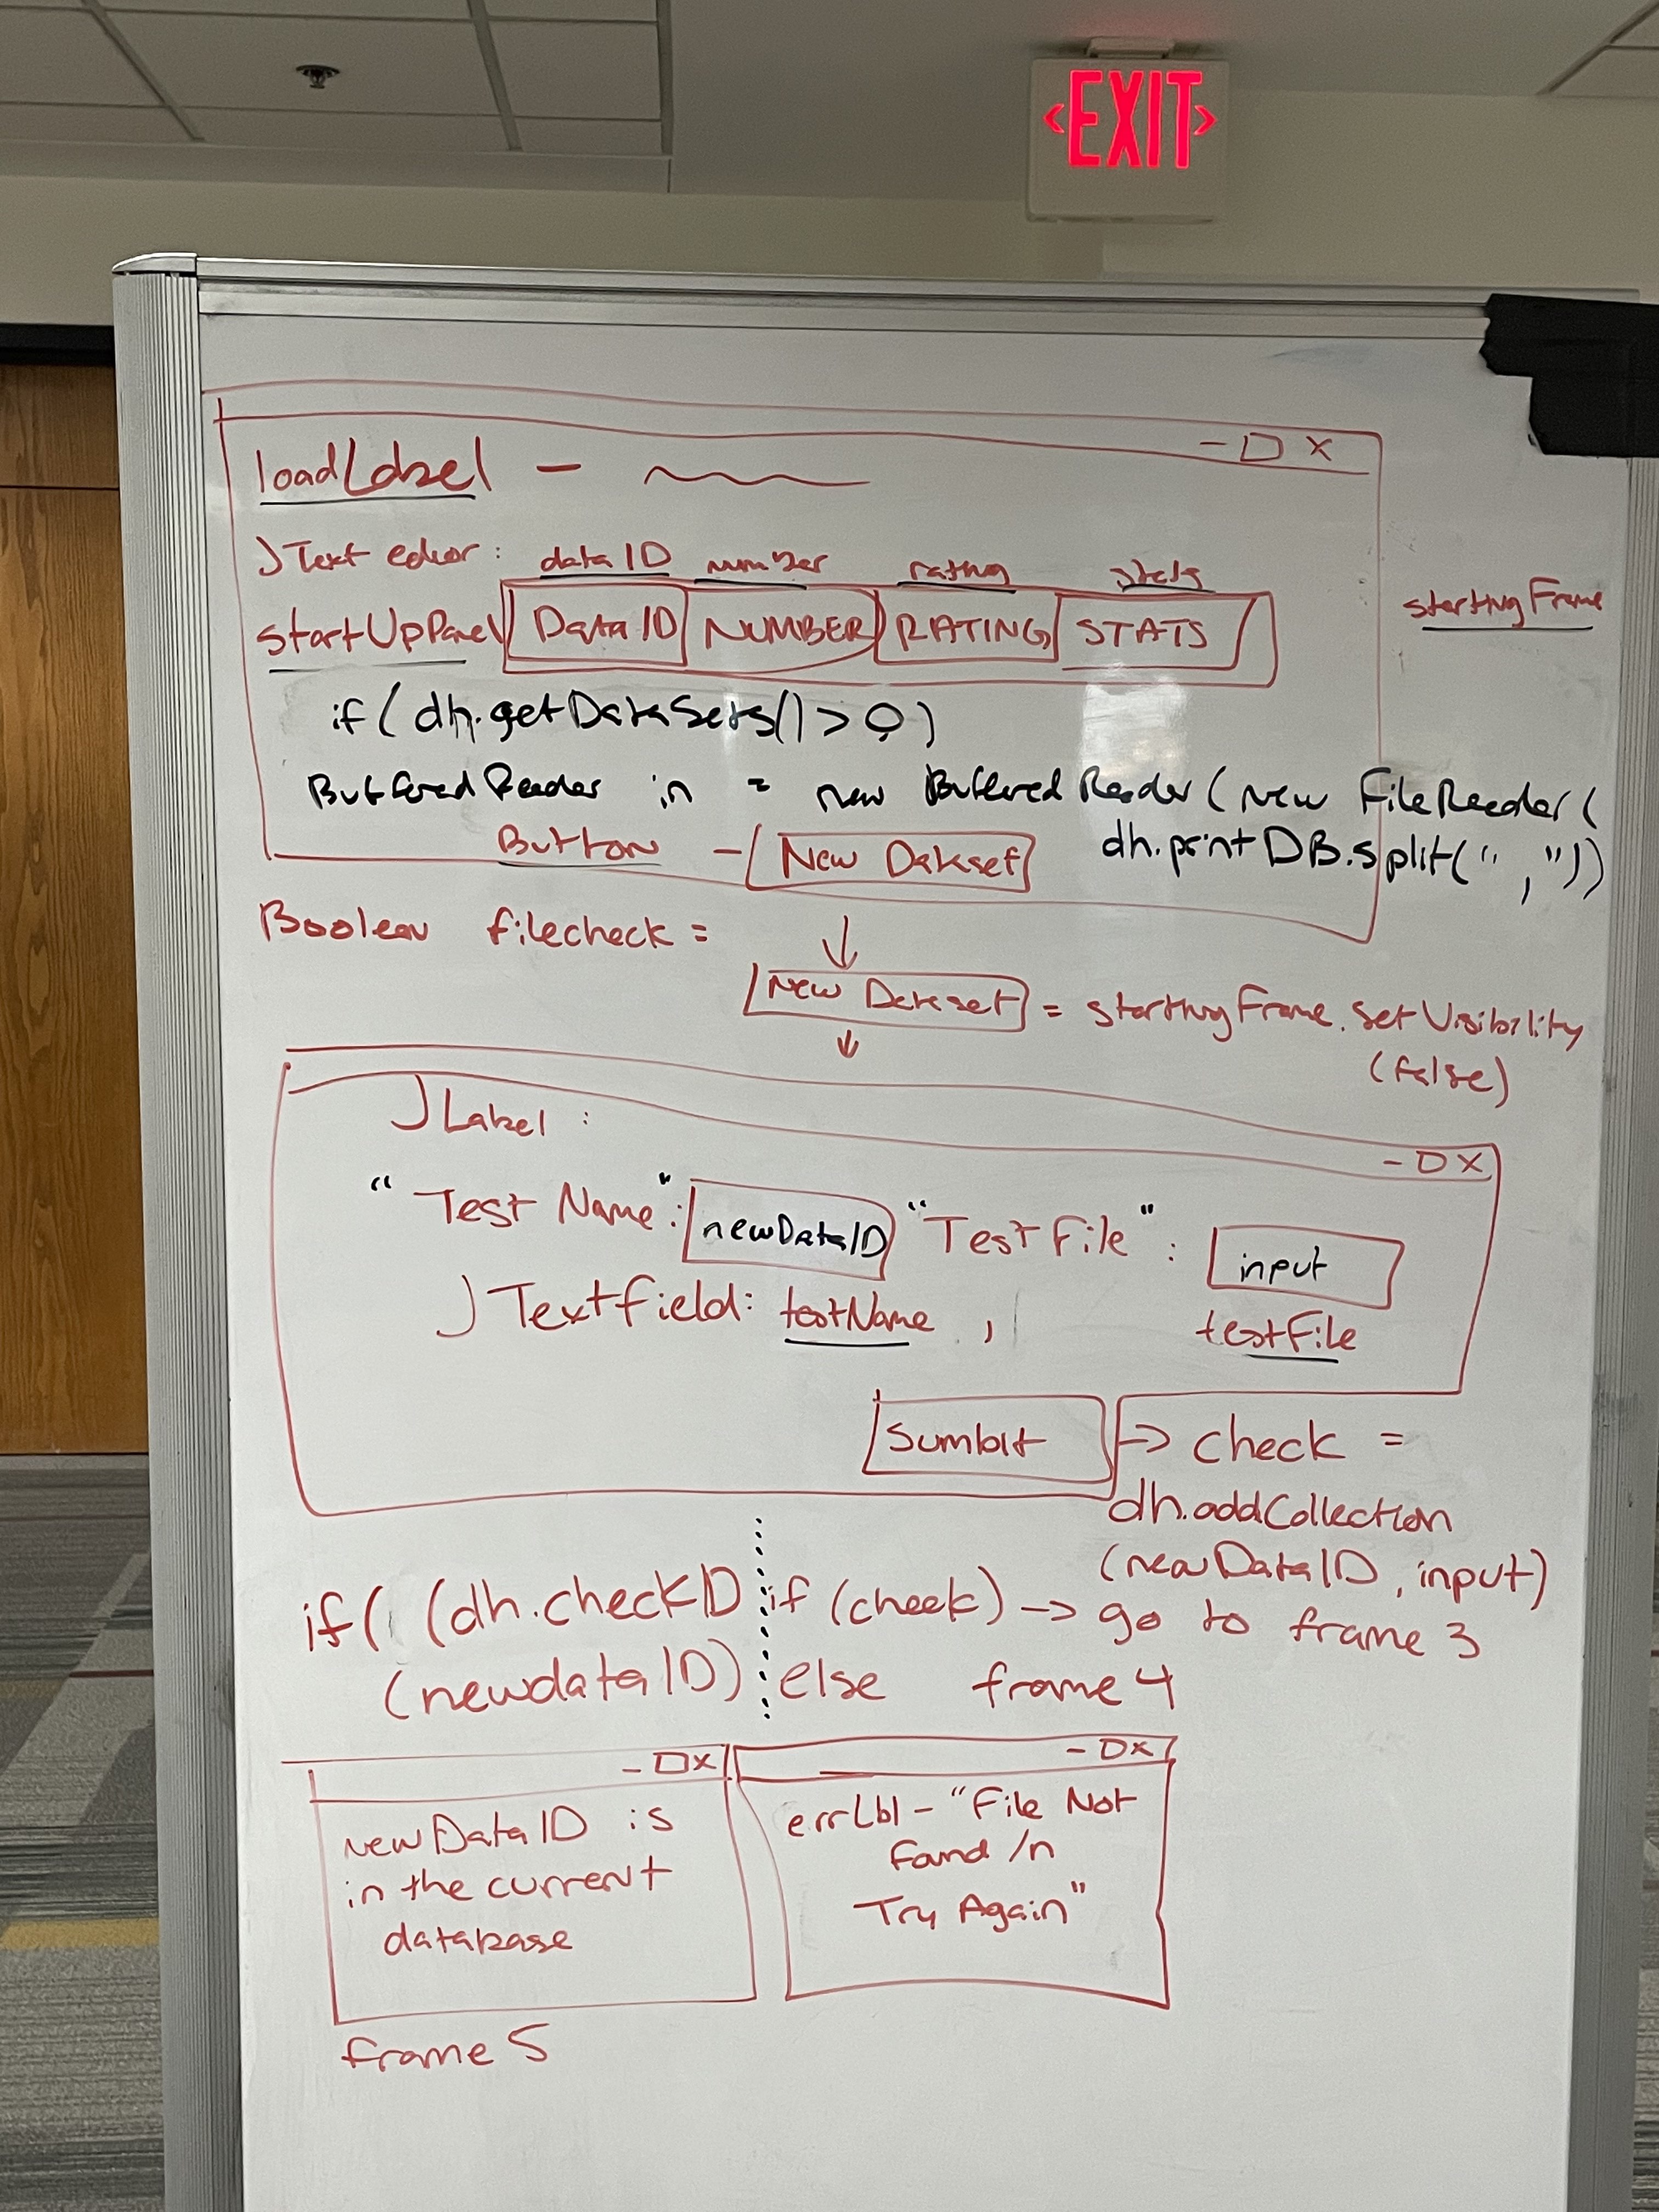 <EXIT>
- D X
loadLabel -
JText editor: dataID number rating stats
startUpPanel DataID NUMBER RATING STATS
startingFrame
if( dh.getDataSets() > 0 )
BufferedReader in = new BufferedReader( new FileReader(
dh.printDB.split(" , "))
Button - New Dataset
Boolean filecheck =
New Dataset = startingFrame.setVisibility
(false)
JLabel :
- D X
"Test Name": newDataID "Test File" : input
JTextField: testName , testFile
Sumbit -> check =
dh.addCollection
(newDataID, input)
if( (dh.checkID
(newdataID)
if (check) -> go to frame 3
else frame 4
- D X
newDataID is
in the current
database
frame 5
- D X
errLbl - "File Not
Found /n
Try Again"